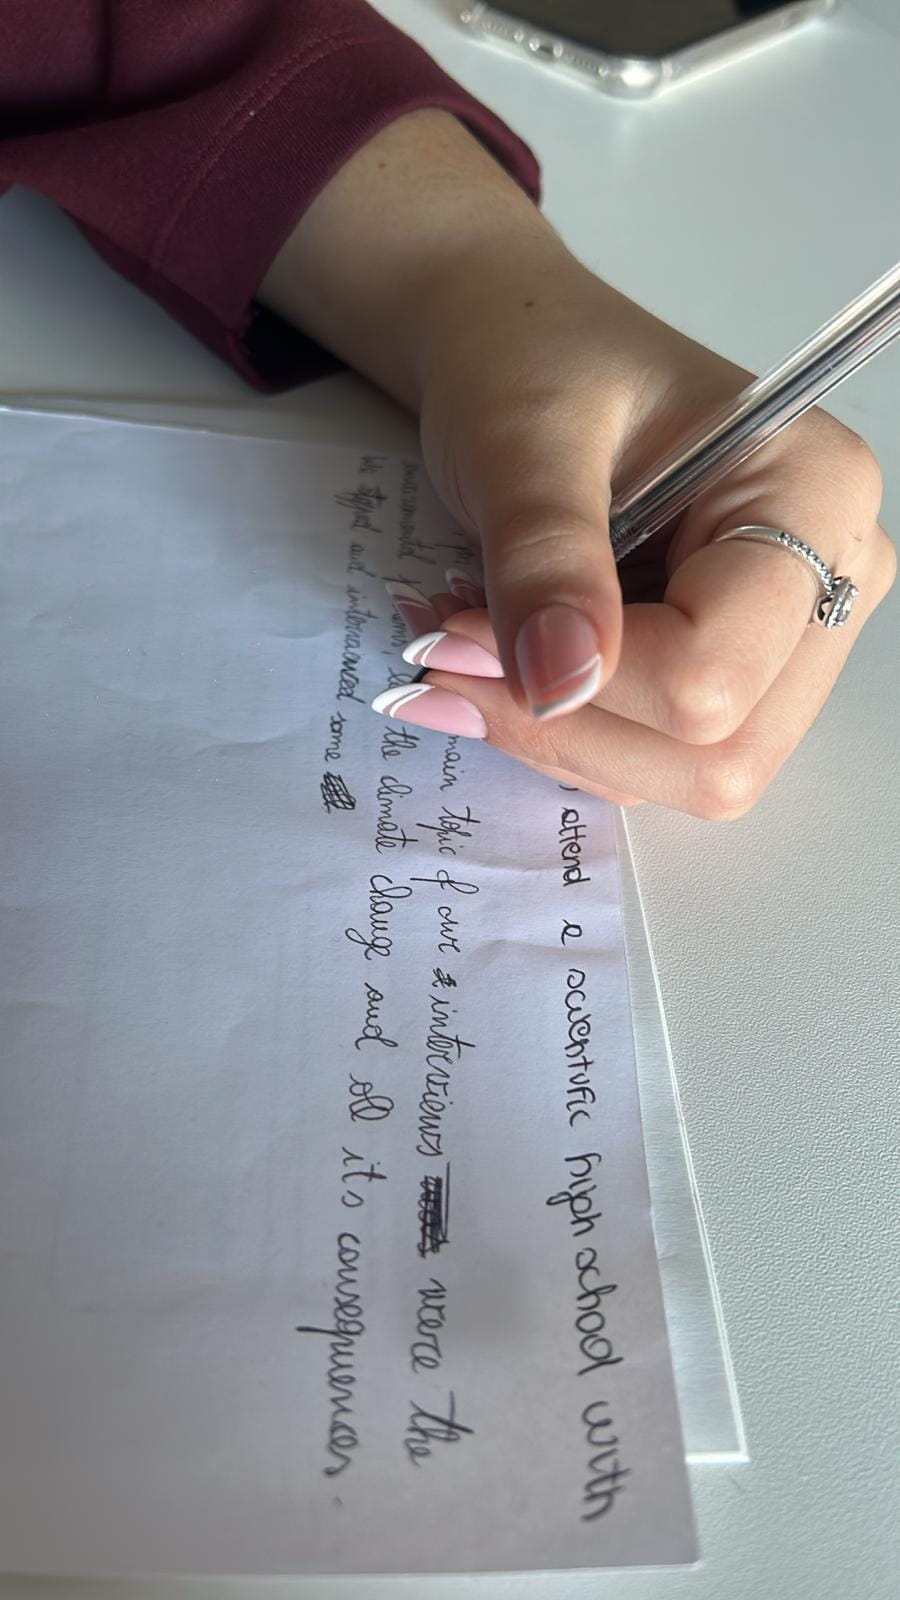 attend a scientific high school with
main topic of our interviews were the
the climate change and all its consequences.
We and interviewed some